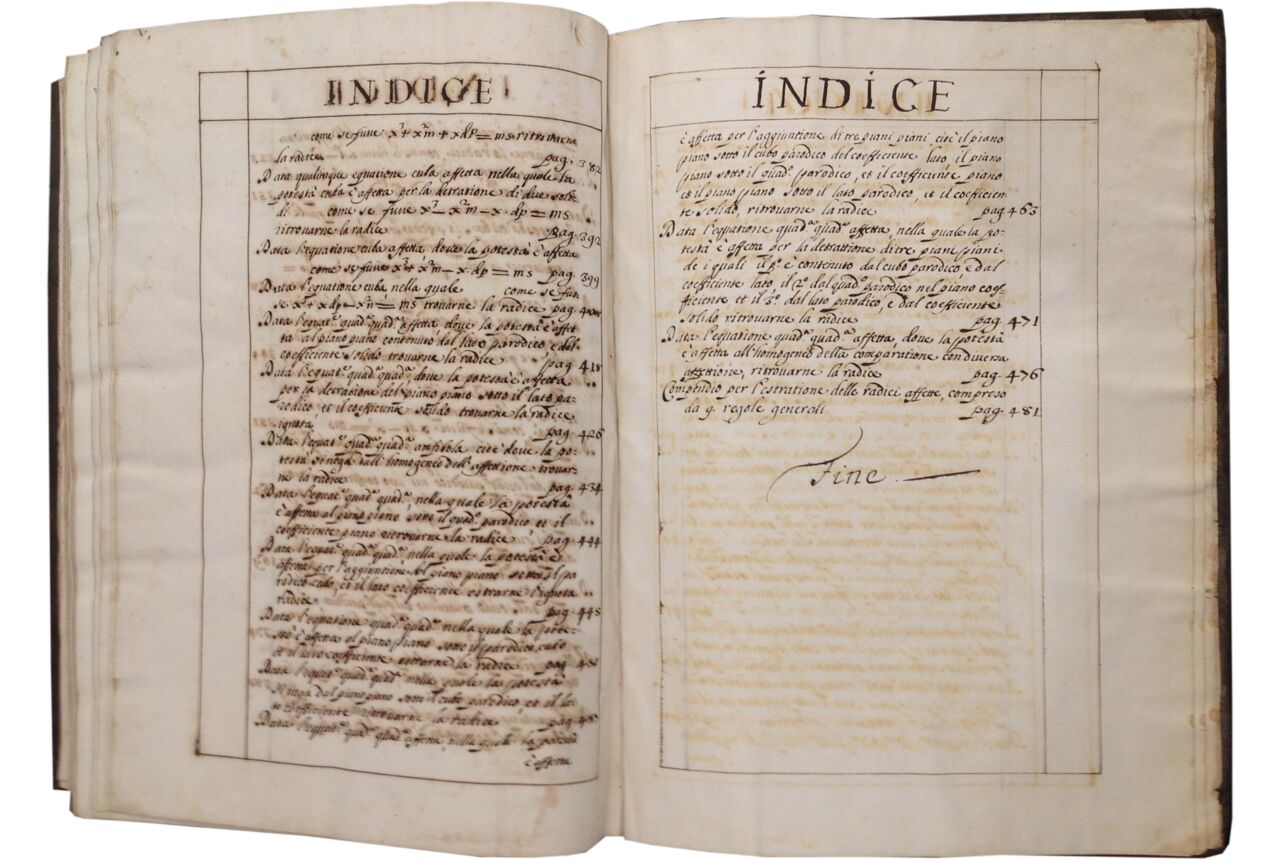 INDICE
come se fusse x³+x²m+xdp=ms ritrovarne
la radice pag. 382
Data qualunque equatione cuba affetta nella quale la
potestà cuba è affetta per la detrazione di due soli-
di come se fusse x³-x²m-x.dp=ms
ritrovarne la radice pag. 392
Data l'equatione cuba affetta, dove la potestà è affetta
come se fusse x³+x²m-x.dp=ms pag. 399
Data l'equatione cuba nella quale come se fus
se trovarne la radice pag.
Data l'equat.e quad.o quad.a affetta dove la potestà è affet
ta al piano piano contenuto dal lato parodico e dal
coefficiente solido trovarne la radice pag. 418
Data l'equat.e quad.o quad.a, dove la potestà è affetta
per la detrazione del piano piano sotto il lato pa-
rodico, et il coefficiente solido trovarne la radice
ignota pag. 426
Data l'equat.e quad.o quad.a cioè dove la po-
testà si nega dall'homogeneo dell'affettione trovar-
ne la radice pag. 434
Data l'equat.e quad.o quad.a, nella quale la potestà
è affetta al piano piano sotto il quad.o parodico et il
coefficiente piano ritrovarne la radice pag. 444
Data l'equat.e quad.o quad.a nella quale la potestà è
affetta per l'aggiuntione del piano piano sotto il pa
rodico cubo, et il lato coefficiente estrarne l'ignota
radice pag. 448
Data l'equatione quad.o quad.a nella quale la pote-
stà è affetta al piano piano sotto il parodico cubo
et il lato coefficiente ritrovarne la radice pag.
Data l'equat.e quad.o quad.a nella quale la potestà
si nega dal piano piano sotto il cubo parodico, et il la-
to coefficiente ritrovarne la radice pag.
Data l'equat.e quad.o quad.a affetta, nella quale la potestà
è affetta
INDICE
è affetta per l'aggiuntione di tre piani piani, cioè il piano
piano sotto il cubo parodico del coefficiente lato il piano
piano sotto il quad.o parodico, et il coefficiente piano
et il piano piano sotto il lato parodico, et il coefficien-
te solido, ritrovarne la radice pag. 463
Data l'equatione quad.o quad.a affetta nella quale la po-
testà è affetta per la detrattione di tre piani piani
de i quali il p.o è contenuto dal cubo parodico e dal
coefficiente lato, il 2.o dal quad.o parodico nel piano coef-
ficiente et il 3.o dal lato parodico, e dal coefficiente
solido ritrovarne la radice pag. 471
Data l'equatione quad.o quad.a affetta, dove la potestà
è affetta all'homogeneo della comparatione con diversa
affettione, ritrovarne la radice pag. 476
Compendio per l'estratione delle radici affette, compreso
da 9. regole generali pag. 481
Fine.